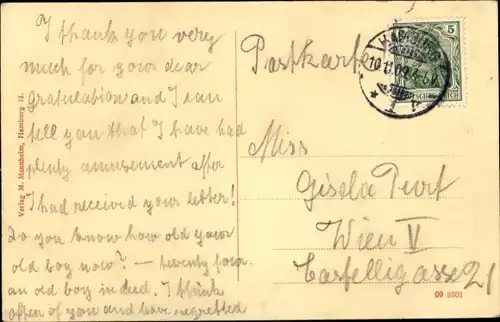 I thank you very
much for your dear
gratulation and I can
tell you that I have had
plenty amusement after
I had received your letter!
Do you know how old your
old boy now? — twenty four
an old boy indeed. I think
often of you and have regretted
Postkarte
HAMBURG
10.11.09
1
5
DEUTSCHES REICH
Miss
Gisela
Wien V
Castelligasse 21
Verlag M. Mannheim, Hamburg 13.
09 8801